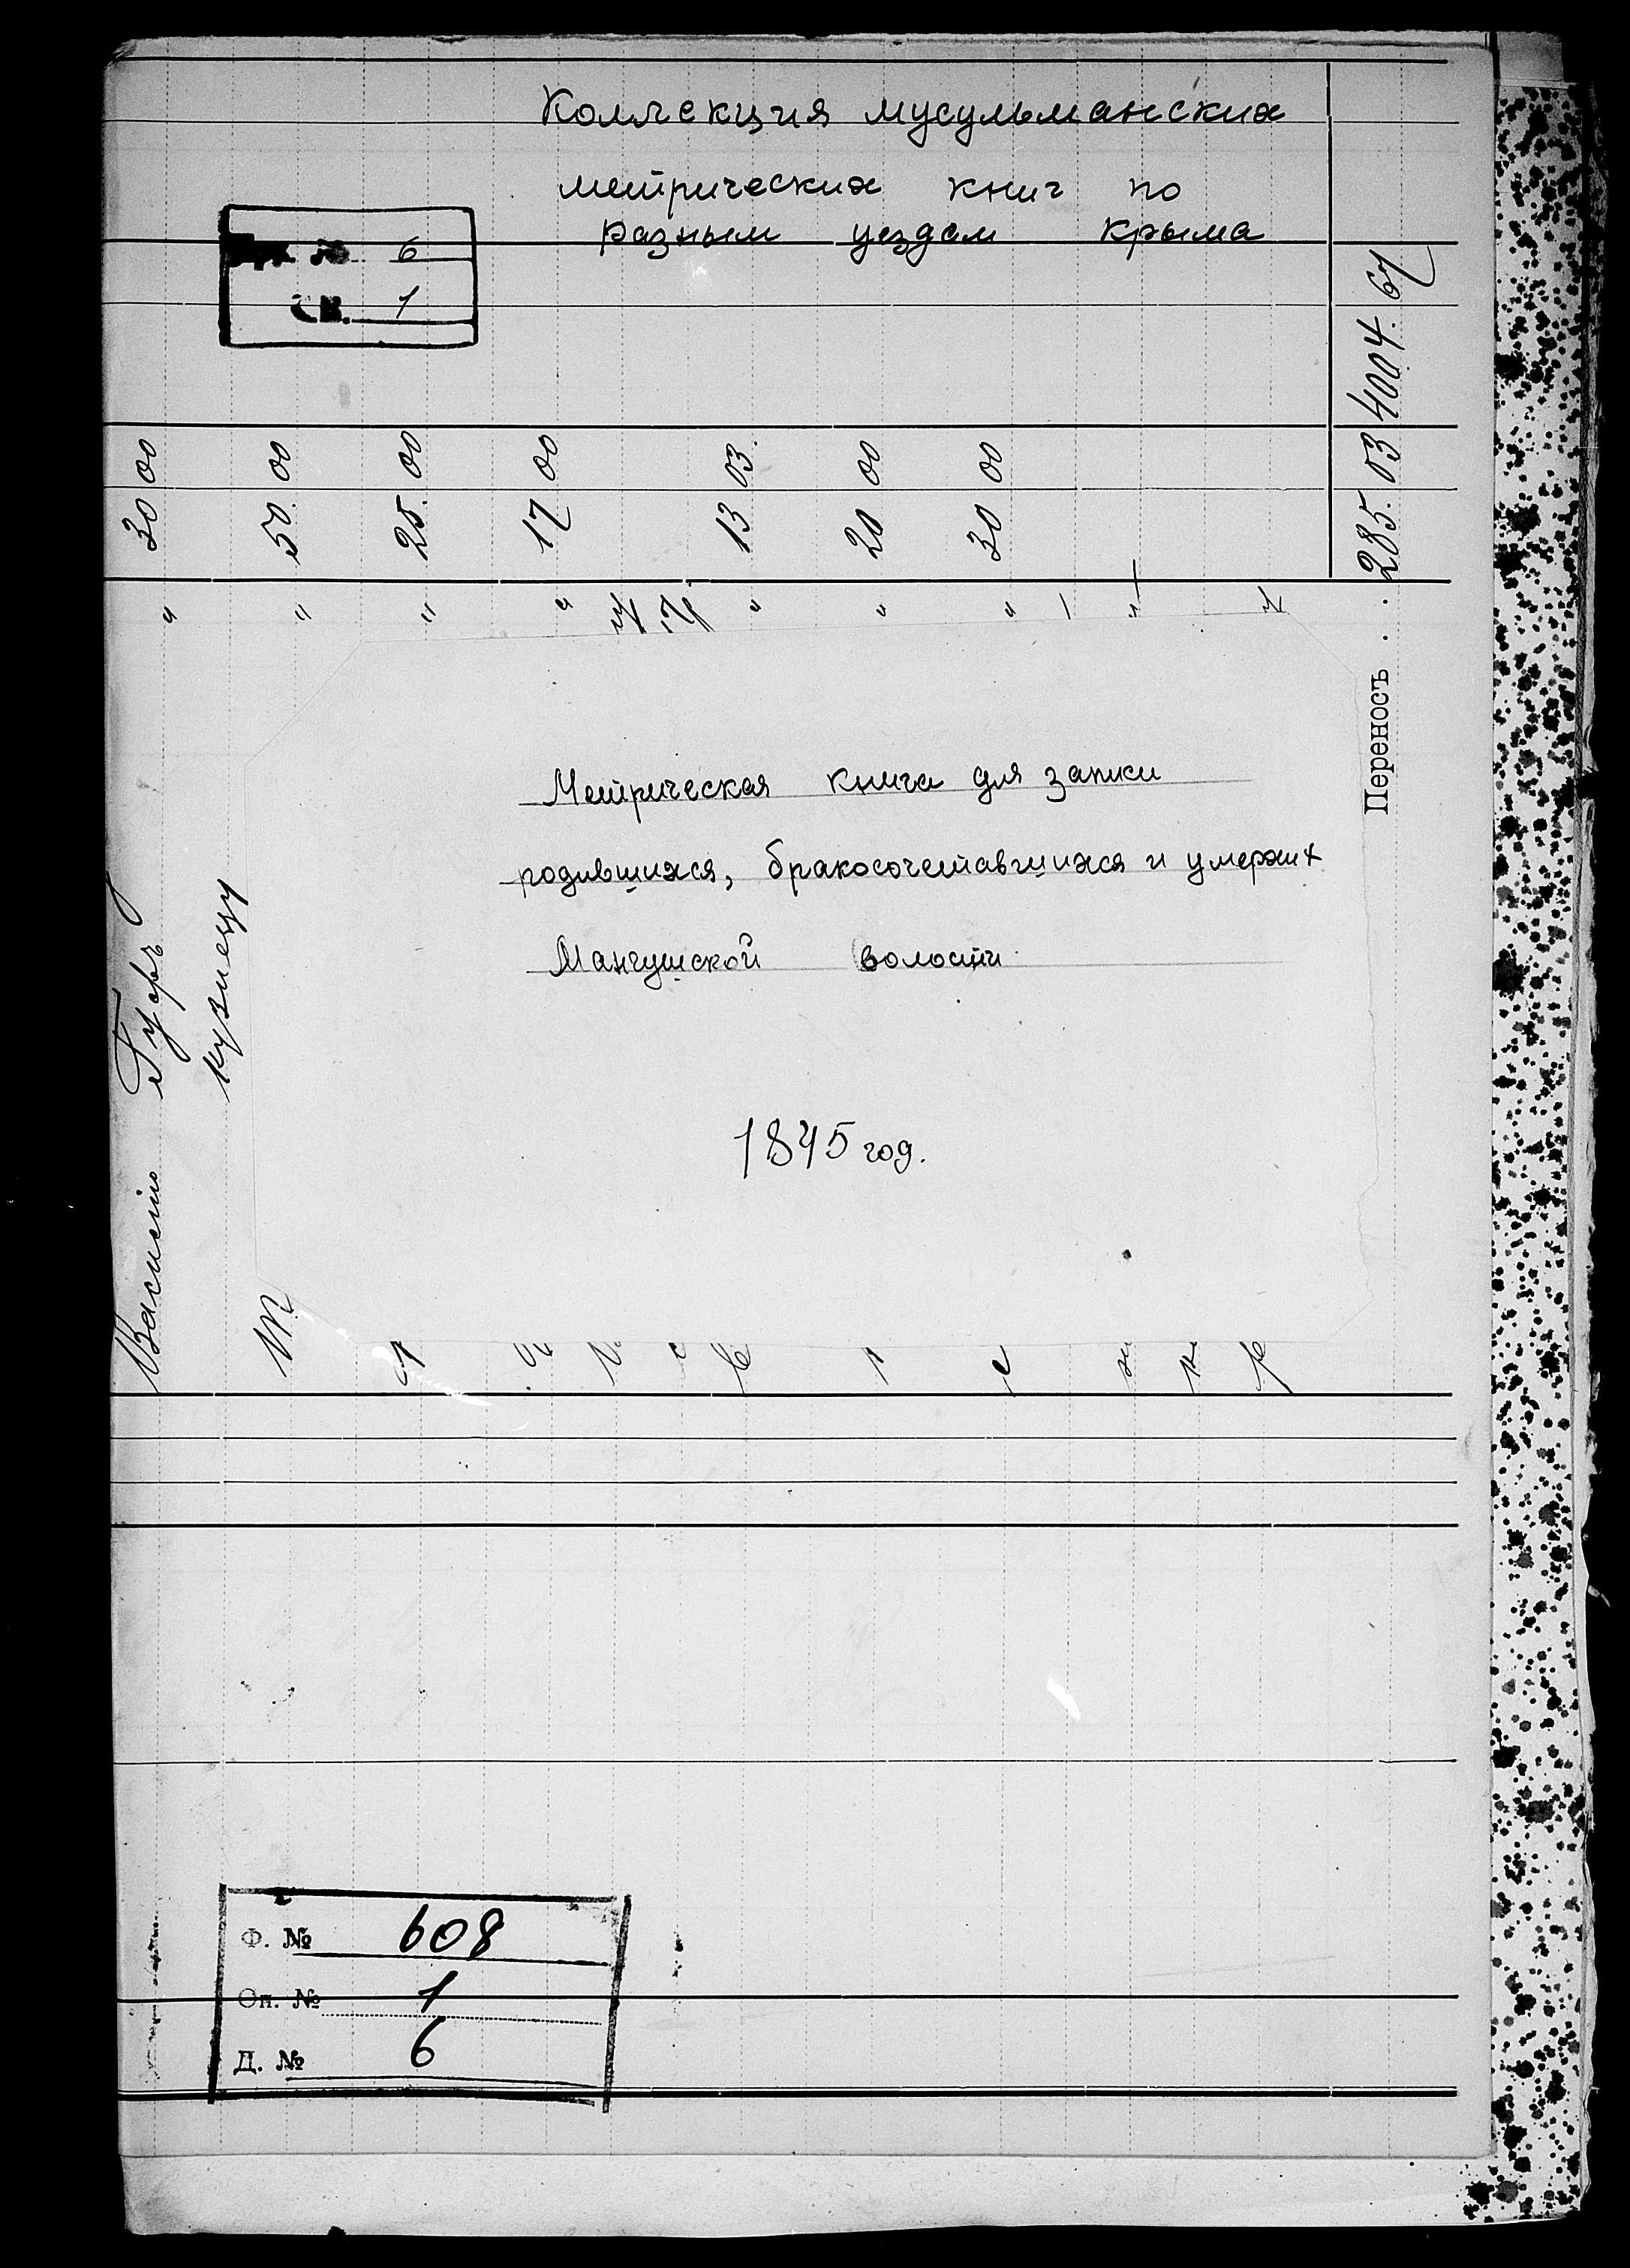 Коллекция мусульманских
метрических книг по
разным уездам Крыма
№ 6
св. 1
4004. 67
30 00
50. 00
25. 00
17 00
13 03.
20 00
30 00
285. 03
Переносъ . .
Метрическая книга для записи
родившихся, бракосочетавшихся и умерших
Мангушской волости
1845 год.
кузнецу
Ф. № 608
Оп. № 1
Д. № 6